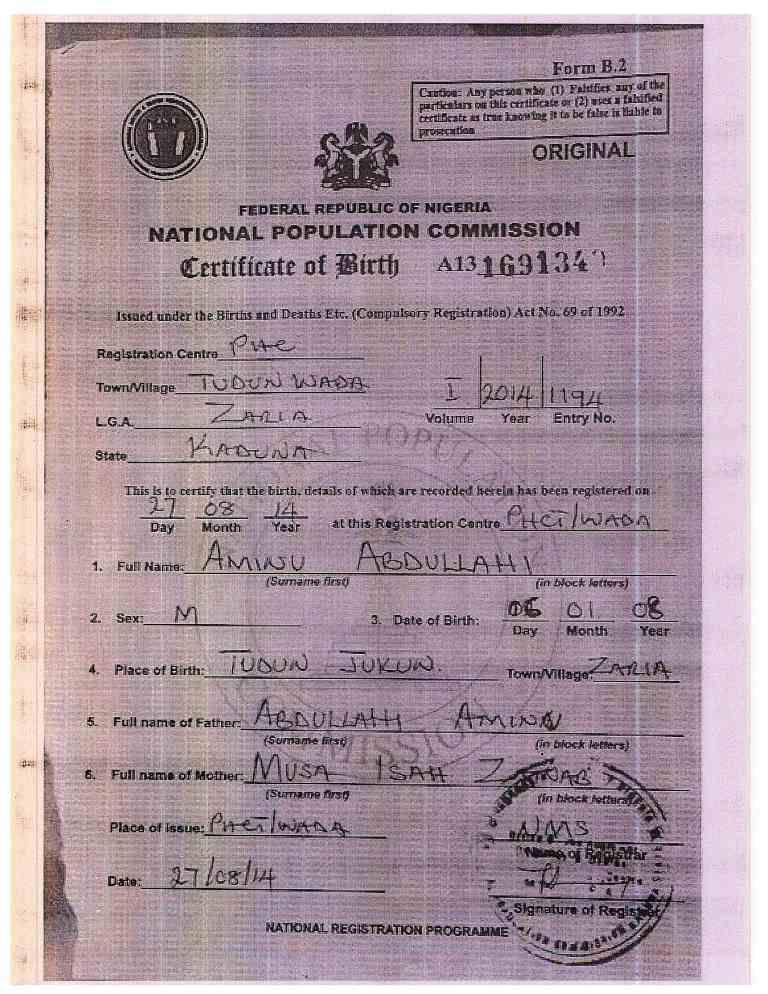 Form B.2
Caution: Any person who (1) Falsifies any of the
particulars on this certificate or (2) uses a falsified
certificate as true knowing it to be false is liable to
prosecution
ORIGINAL
FEDERAL REPUBLIC OF NIGERIA
NATIONAL POPULATION COMMISSION
Certificate of Birth A13 169134
Issued under the Births and Deaths Etc. (Compulsory Registration) Act No. 69 of 1992
Registration Centre PHC
Town/Village TUDUN WADA I 2014 1194
L.G.A. ZARIA Volume Year Entry No.
State KADUNA
This is to certify that the birth, details of which are recorded herein has been registered on
27 08 14
Day Month Year at this Registration Centre PHCT/WADA
1. Full Name: AMINU ABDULLAHI
(Surname first) (in block letters)
2. Sex: M 3. Date of Birth: 06 01 08
Day Month Year
4. Place of Birth: TUDUN JUKUN. Town/Village: ZARIA
5. Full name of Father: ABDULLAHI AMINU
(Surname first) (in block letters)
6. Full name of Mother: MUSA ISAH
(Surname first) (in block letters)
Place of issue: PHCT/WADA NMS
Name of Registrar
Date: 27/08/14
Signature of Registrar
NATIONAL REGISTRATION PROGRAMME